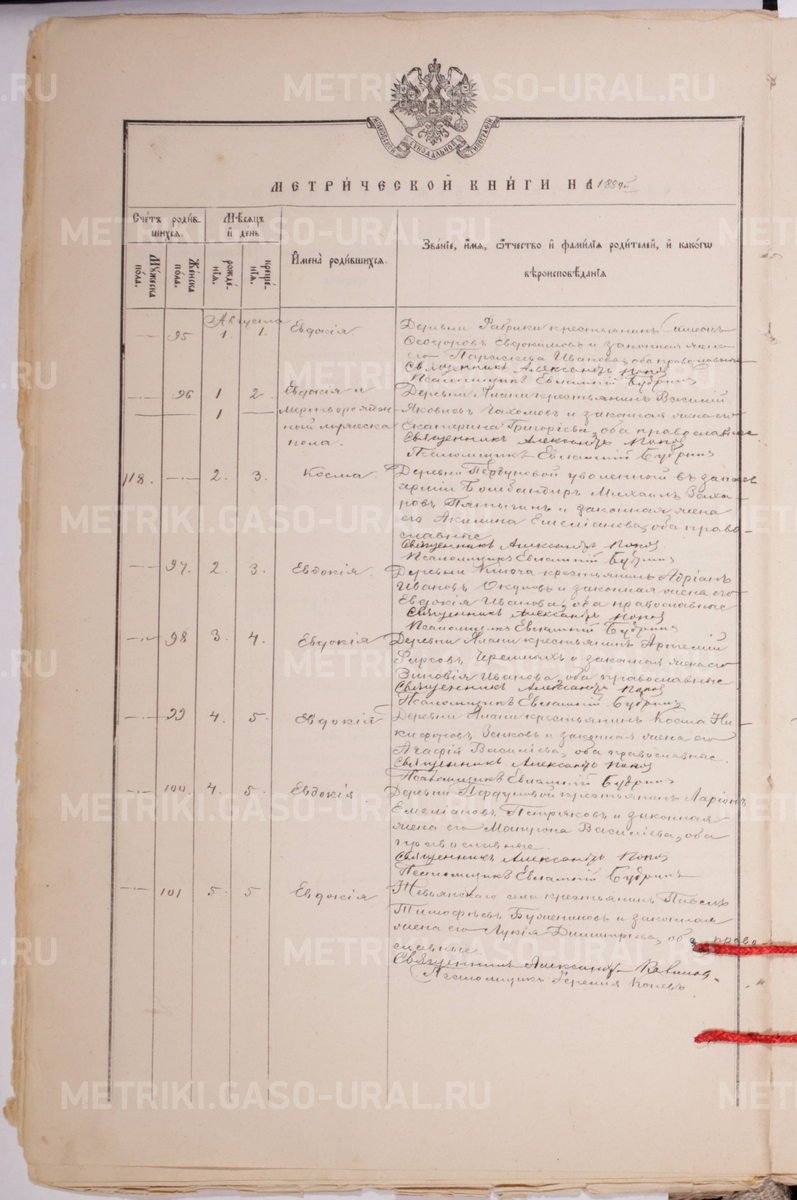 МЕТРИ́ЧЕСКОЙ КНИ́ГИ НА 189
Сче́тъ роди́в-шихся.
Мѣсяцъ и день
Имена́ роди́вшихся.
Зва́нїе, и́мя, ѻ́тчество и фами́лїя роди́телей, и како́гѡ вѣроисповѣ́данїя
Му́жеска по́ла.
Же́нска по́ла.
рожде́-нїя.
креще́-нїя.
Августа
95 1 1. Евдокія
Деревни Фабрики крестьянинъ Симеонъ
Ѳеодоровъ Евдокимовъ и законная жена
его Параскева Иванова, оба православные
Священникъ Александръ Поповъ
Псаломщикъ Евлампій Будринъ
96 1 2. Евдокія и
1 мертворожден
ный мужеска
пола.
Деревни Алани крестьянинъ Василій
Яковловъ и законная жена его
Екатерина Григоріева, оба православные
Священникъ Александръ Поповъ
Псаломщикъ Евлампій Будринъ
118. 2. 3. Косма
Деревни Пердуновой уволенный въ запасъ
арміи Бомбандиръ Михаилъ Заха
ровъ и законная жена
его Акилина Емеліанова, оба право
славные
Священникъ Александръ Поповъ
Псаломщикъ Евлампій Будринъ
97. 2. 3. Евдокія
Деревни Ключа крестьянинъ Адріанъ
Ивановъ и законная жена его
Евдокія Иванова, оба православные
Священникъ Александръ Поповъ
Псаломщикъ Евлампій Будринъ
98 3. 4. Евдокія
Деревни Алани крестьянинъ Артемій
Фирсовъ Черемныхъ и законная жена его
Зиновія Иванова, оба православные
Священникъ Александръ Поповъ
Псаломщикъ Евлампій Будринъ
99 4. 5. Евдокія
Деревни Алани крестьянинъ Косма Ни
кифоровъ и законная жена его
Агафія Василіева, оба православные.
Священникъ Александръ Поповъ
Псаломщикъ Евлампій Будринъ
100 4. 5. Евдокія
Деревни Пердуновой крестьянинъ Ларіонъ
Емеліановъ Петряковъ и законная
жена его Матрона Василіева, оба
православные.
Священникъ Александръ Поповъ
Псаломщикъ Евлампій Будринъ
101 5. 5 Евдокія
Невьянскаго села крестьянинъ Павелъ
Тимоѳеевъ и законная
жена его Лукія Димитріева, оба право
славные
Священникъ Александръ
Псаломщикъ Іеремія
METRIKI.GASO-URAL.RU